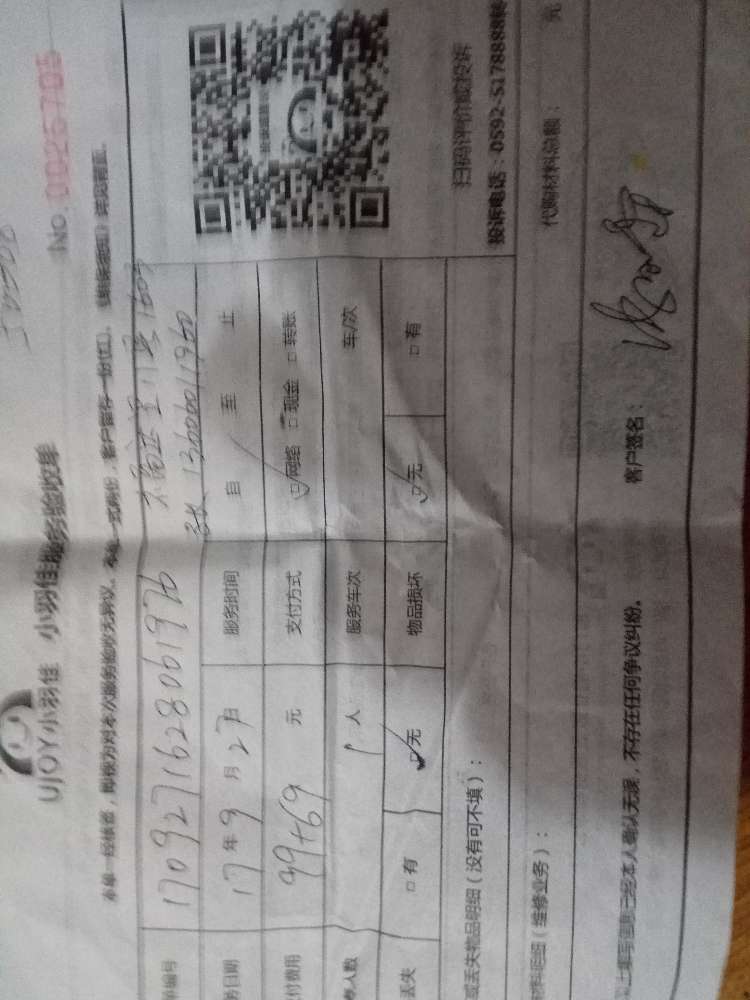 UJOY小羽佳 小羽佳服务验收单 No: 0026705
本单一经签署，即视为对本次服务验收无异议。本单一式两份，客户留存一份(红)。
单编号 170927162806197b
张 13600011960
务日期 17年9月27日 服务时间 自 至 止
付费用 99+69 元 支付方式 ☑网络 □现金 □转账
人数 1人 服务车次 车/次
丢失 □有 ☑无 物品损坏 ☑无 □有
扫码评价或投诉
投诉电话：0592-5178888
或丢失物品明细（没有可不填）：
材料明细（维修业务）： 代购材料总额： 元
以上填写信息已经本人确认无误，不存在任何争议纠纷。 客户签名：